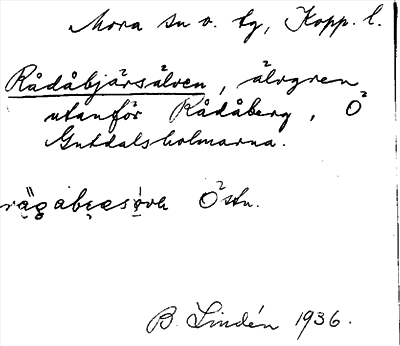 Mora sn o. tg, Kopp. l.
Rådåbjärsälven, älvgren
utanför Rådåberg, Ö
Gutdalsholmarna.
Östn.
B. Lindén 1936.